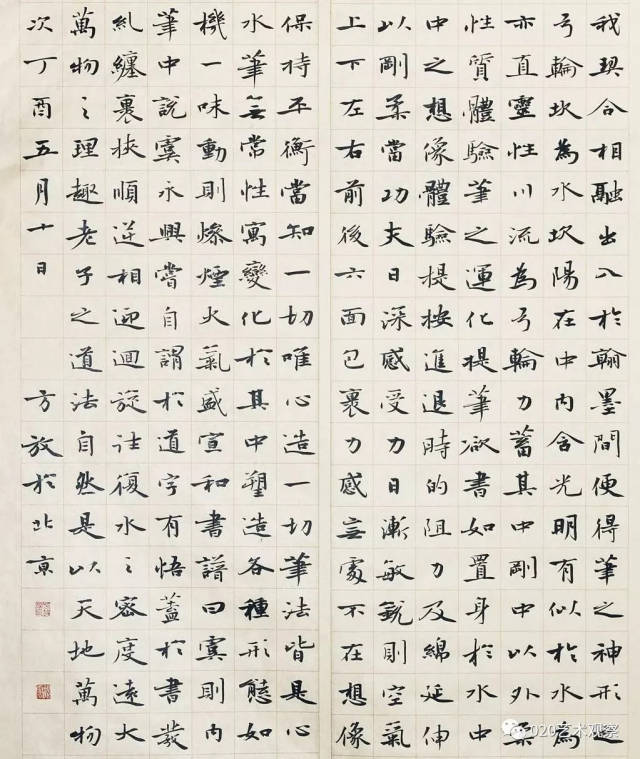 我契合相融出入於翰墨間便得筆之神形之
弓輪坎為水坎陽在中內含光明有似於水為
亦直靈性川流為弓輪力蓄其中剛中以外柔
性質體驗筆之運化提筆欲書如置身於水中
中之想像體驗提按進退時的阻力及綿延伸
以剛柔當功夫日深感受力日漸敏銳則空氣
上下左右前後六面包裹力感無處不在想像
保持平衡當知一切唯心造一切筆法皆是心
水筆無常性寓變化於其中塑造各種形態如
機一味動則燥煙火氣盛宣和書譜曰虞則內
筆中說虞永興嘗自謂於道字有悟蓋於書發
糺纏裹挾順逆相迎迴旋往復水之密度遠大
萬物之理趣老子之道法自然是以天地萬物
次丁酉五月十日 方放於北京
020艺术观察